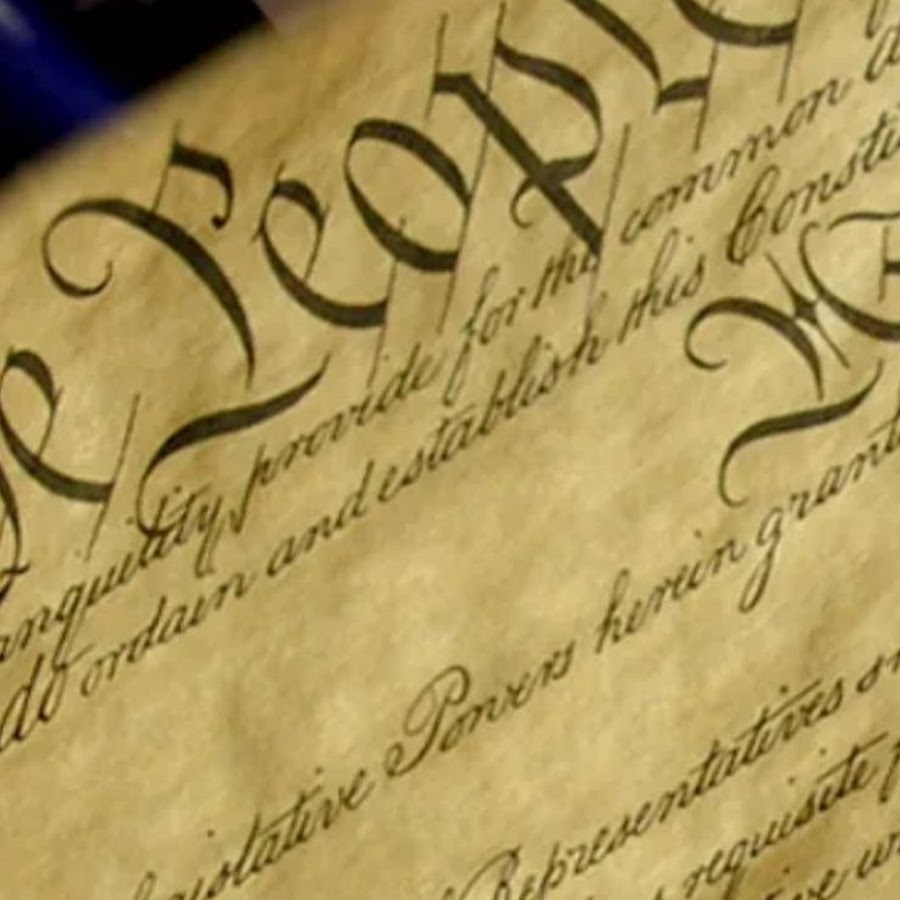 e People
anquility, provide for the common d
do ordain and establish this Constit
legislative Powers herein grant
Representatives
requisite